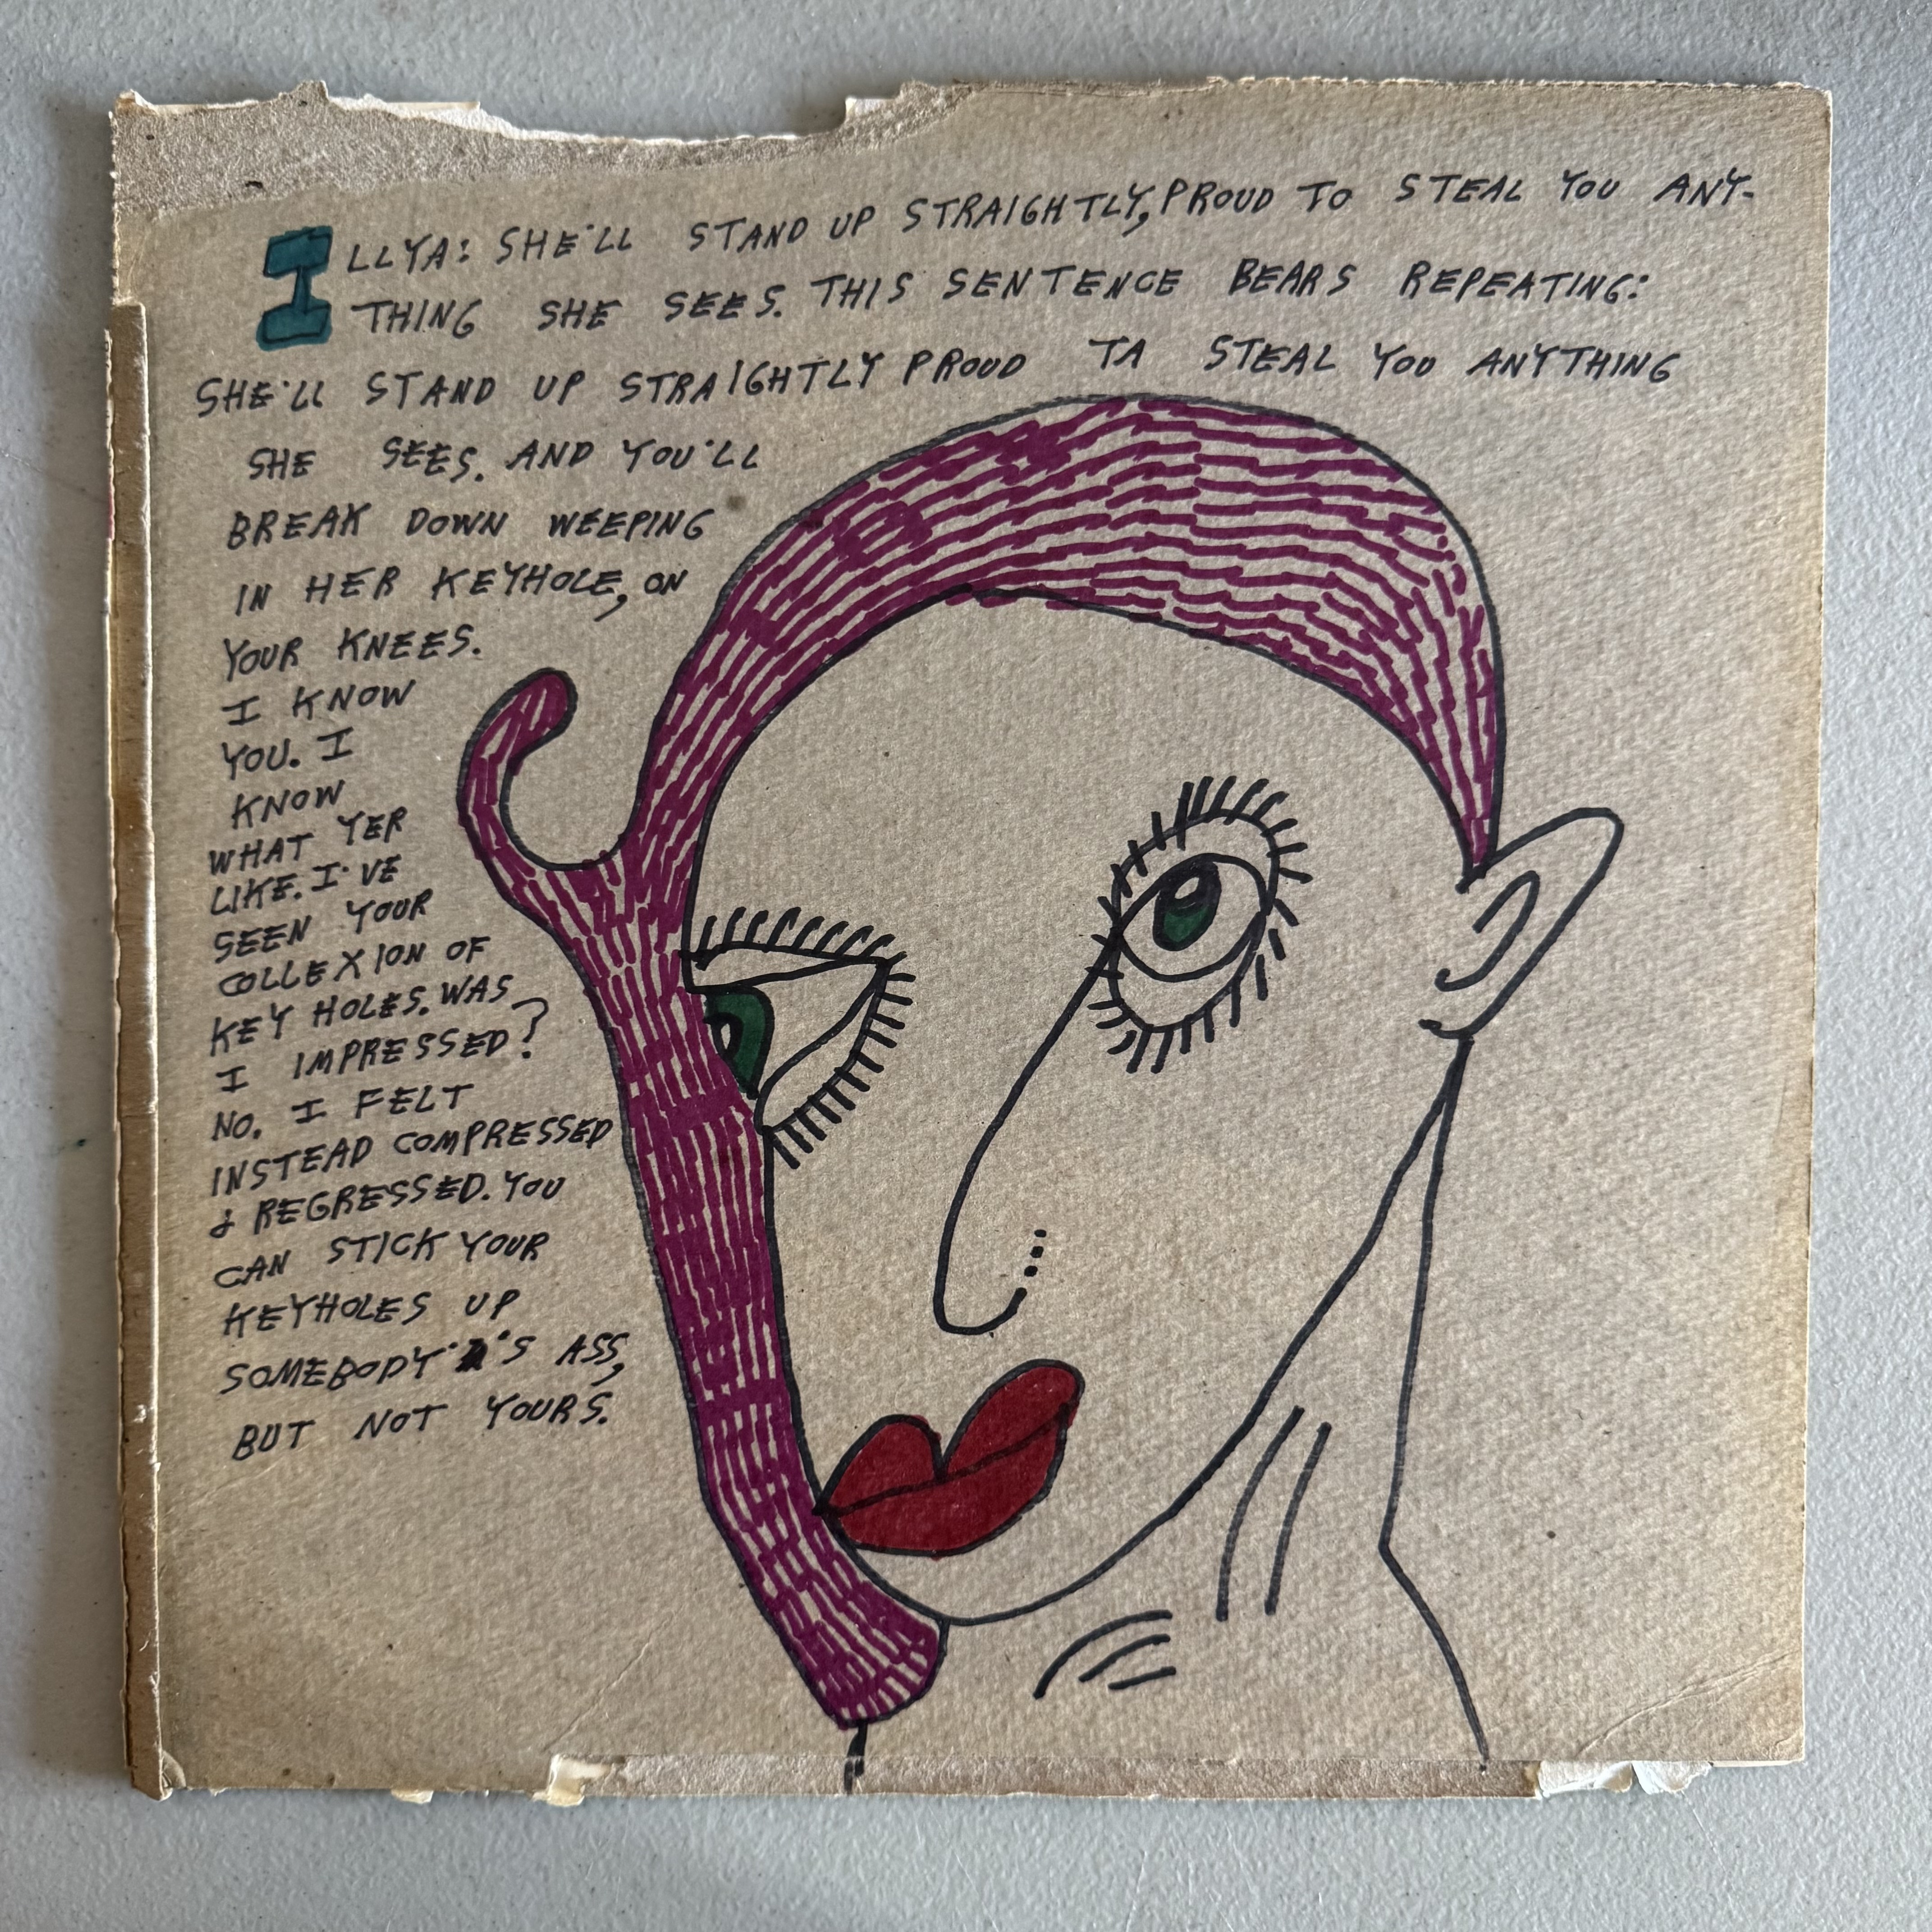 ILLYA: SHE'LL STAND UP STRAIGHTLY, PROUD TO STEAL YOU ANY-
THING SHE SEES. THIS SENTENCE BEARS REPEATING:
SHE'LL STAND UP STRAIGHTLY PROUD TA STEAL YOU ANYTHING
SHE SEES. AND YOU'LL
BREAK DOWN WEEPING
IN HER KEYHOLE, ON
YOUR KNEES.
I KNOW
YOU. I
KNOW
WHAT YER
LIKE. I'VE
SEEN YOUR
COLLEXION OF
KEY HOLES. WAS
I IMPRESSED?
NO. I FELT
INSTEAD COMPRESSED
& REGRESSED. YOU
CAN STICK YOUR
KEYHOLES UP
SOMEBODY'S ASS,
BUT NOT YOURS.